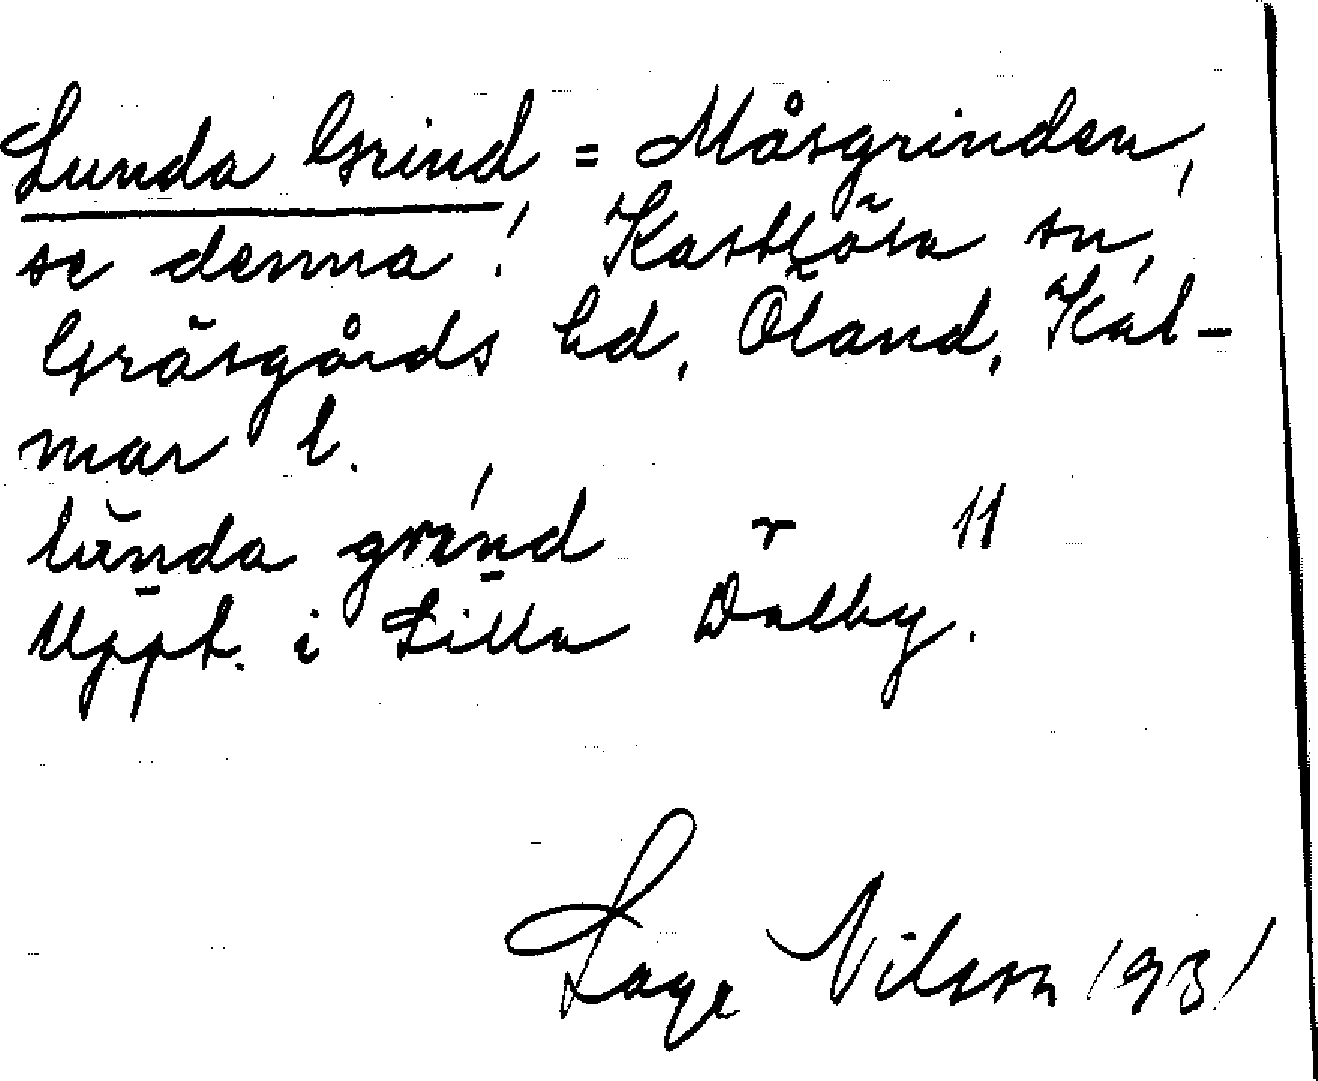 Lunda Grind = Måsgrinden,
se denna! Kastlösa sn,
Gräsgårds hd, Öland, Kal-
mar l.
lunda grind 11
Uppt. i Lilla Dalby.
Lage Nilsson 1931